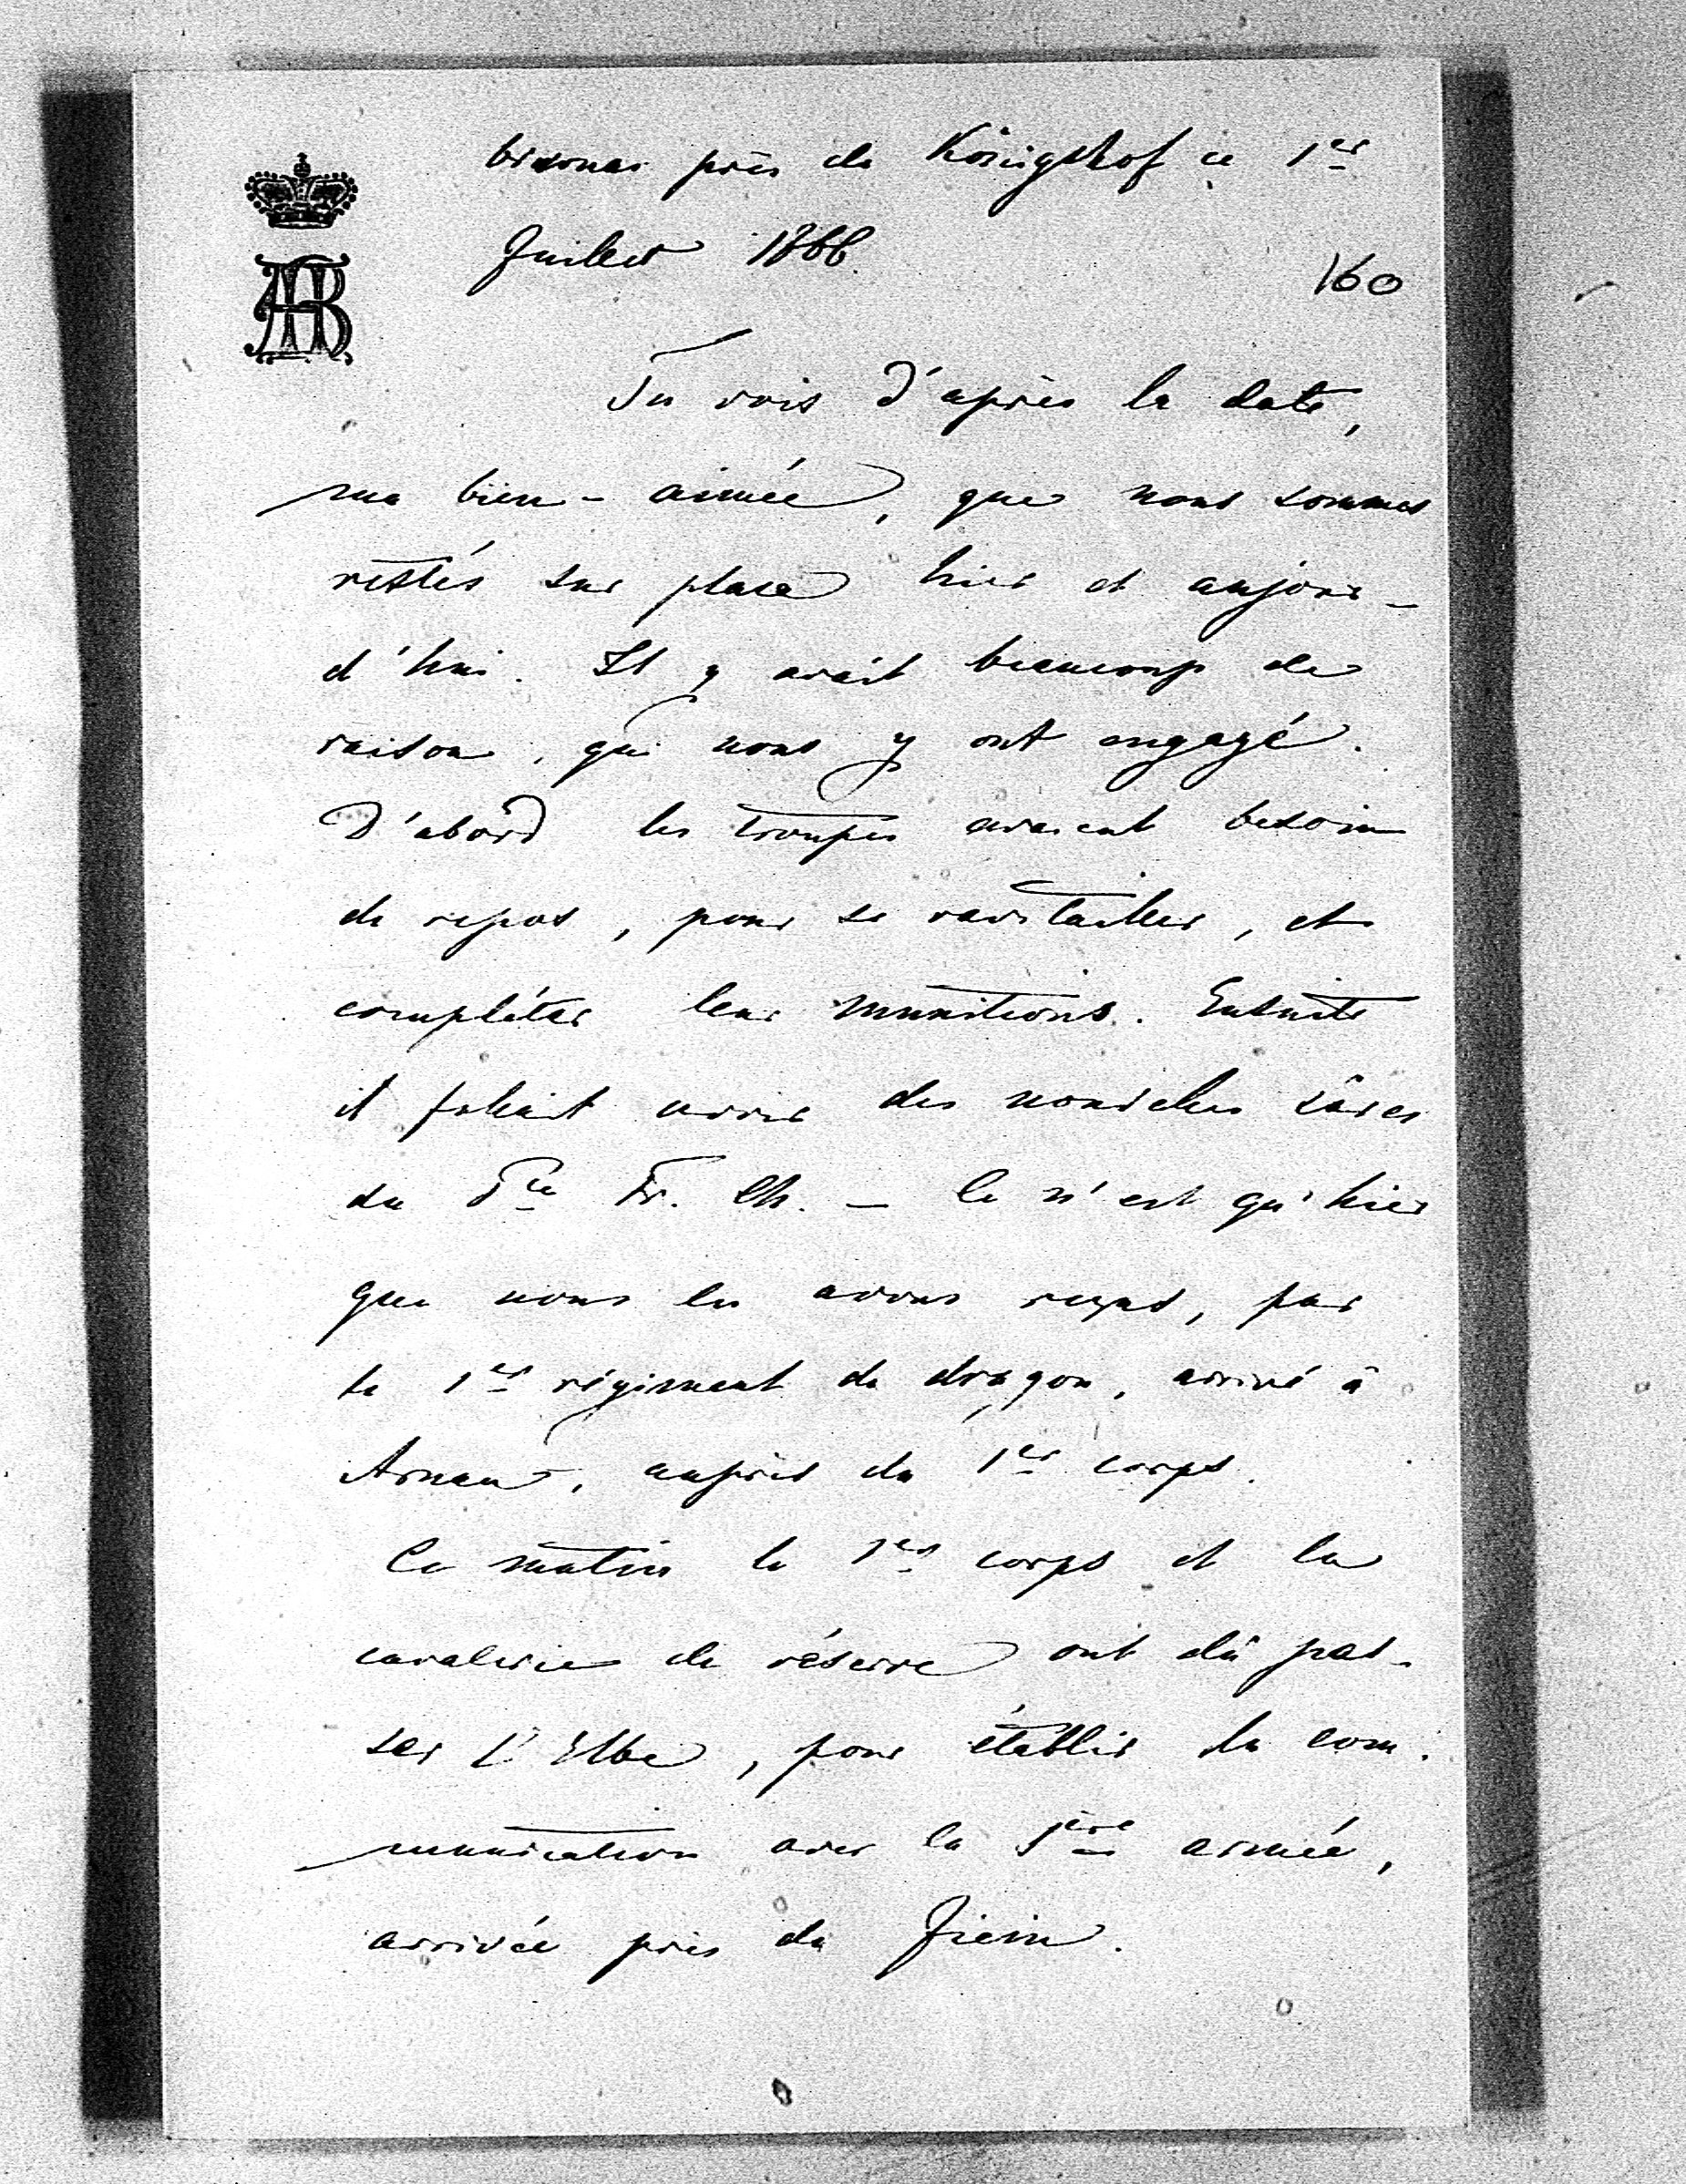 bivouac près de Königshof ce 1er
Juillet 1866.
160
AB
Tu vois d'après la date,
ma bien-aimée, que nous sommes
restés sur place hier et aujour-
d'hui. Il y avait beaucoup de
raison, qui nous y ont engagé.
D'abord les troupes avaient besoin
de repos, pour se ravitailler, et
compléter leur munitions. Ensuite
il fallait avoir des nouvelles sûres
du Pce Fr. Ch. — Ce n'est qu'hier
que nous les avons reçus, par
le 1er régiment de dragon, arrivé à
Arnau, auprès du 1er corps.
Ce matin le 1er corps et la
cavalerie de réserve ont dû pas-
ser l'Elbe, pour établir la com-
munication avec la 1ère armée,
arrivée près de Jicin.